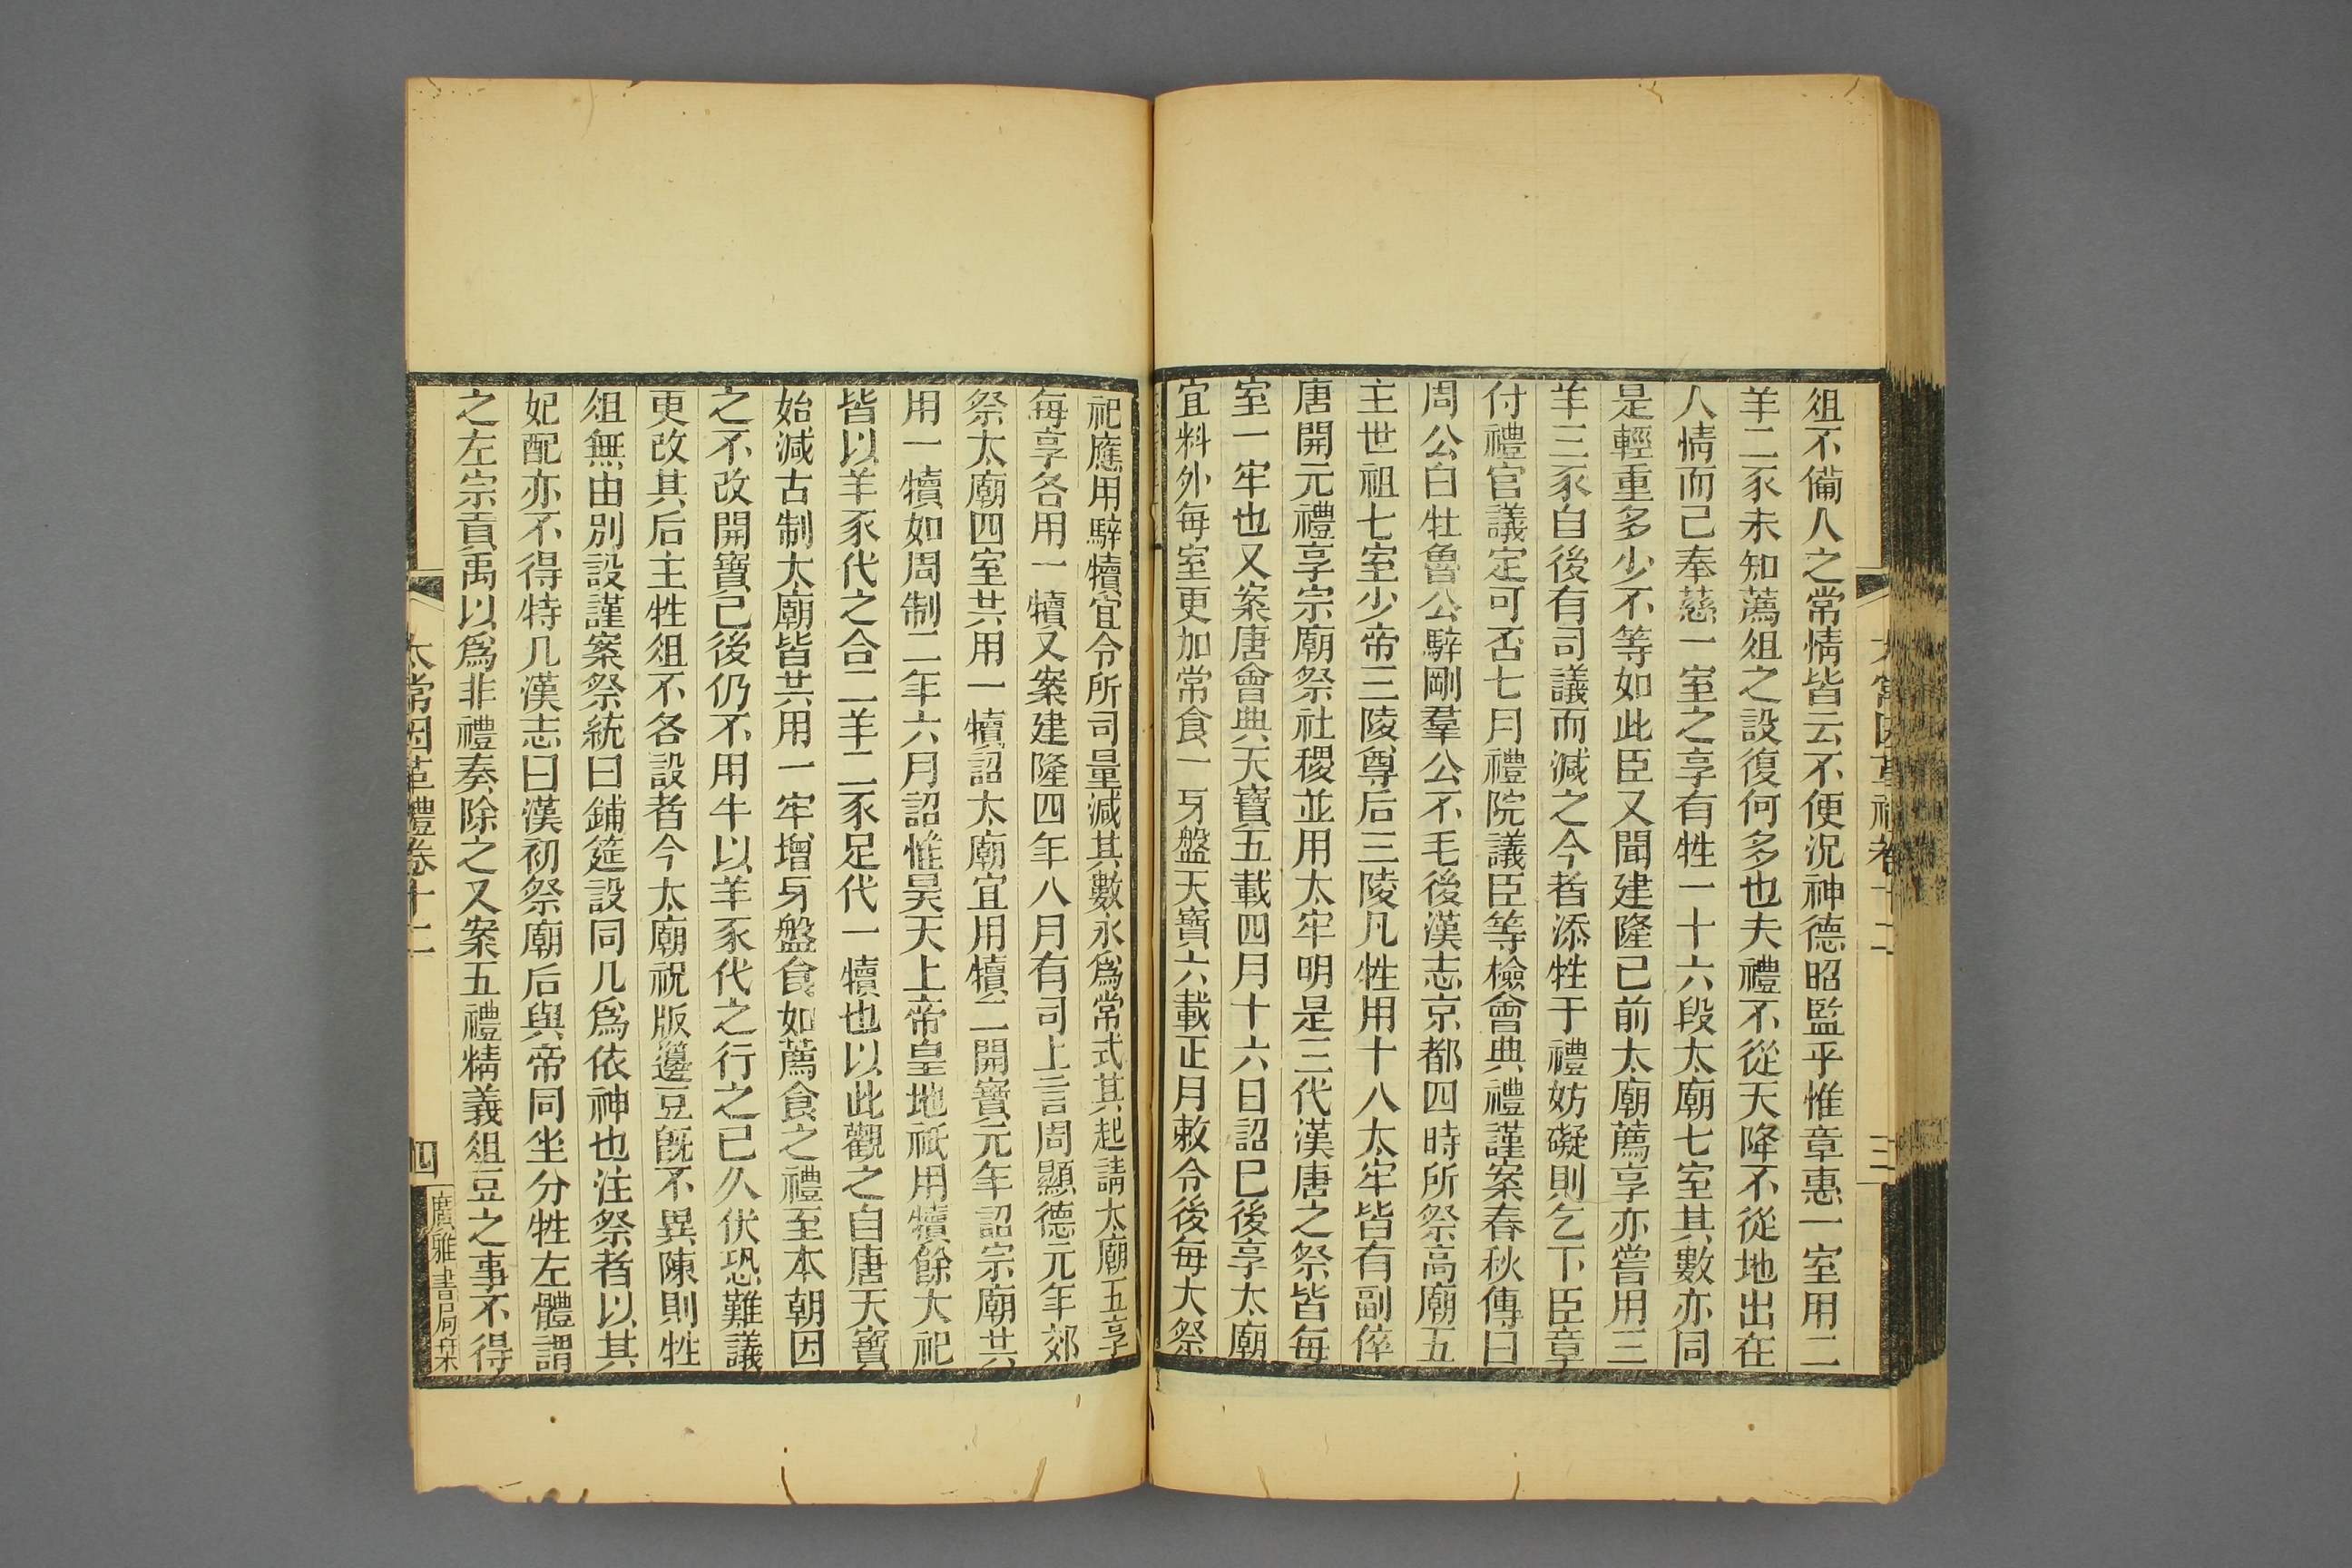 俎不備人之常情皆云不便況神德昭監乎惟章惠一室用二
羊二豕未知薦俎之設復何多也夫禮不從天降不從地出在
人情而已奉慈一室之享有牲一十六段太廟七室其數亦同
是輕重多少不等如此臣又聞建隆已前太廟薦享亦嘗用三
羊三豕自後有司議而減之今者添牲于禮妨礙則乞下臣章
付禮官議定可否七月禮院議臣等檢會典禮謹案春秋傳曰
周公白牡魯公騂剛羣公不毛後漢志京都四時所祭高廟五
主世祖七室少帝三陵尊后三陵凡牲用十八太牢皆有副倅
唐開元禮享宗廟祭社稷並用太牢明是三代漢唐之祭皆每
室一牢也又案唐會典天寶五載四月十六日詔巳後享太廟
宜料外每室更加常食一牙盤天寶六載正月敕令後每大祭
祀應用騂犢宜令所司量減其數永爲常式其起請太廟五享
每享各用一犢又案建隆四年八月有司上言周顯德元年郊
祭太廟四室共用一犢詔太廟宜用犢二開寶元年詔宗廟共
用一犢如周制二年六月詔惟昊天上帝皇地祇用犢餘大祀
皆以羊豕代之合二羊二豕足代一犢也以此觀之自唐天寶
始減古制太廟皆共用一牢增牙盤食如薦食之禮至本朝因
之不改開寶已後仍不用牛以羊豕代之行之已久伏恐難議
更改其后主牲俎不各設者今太廟祝版籩豆旣不異陳則牲
俎無由別設謹案祭統曰鋪筵設同几爲依神也注祭者以其
妃配亦不得特几漢志曰漢初祭廟后與帝同坐分牲左體謂
之左宗貢禹以爲非禮奏除之又案五禮精義俎豆之事不得
太常因革禮卷十二
四
廣雅書局栞